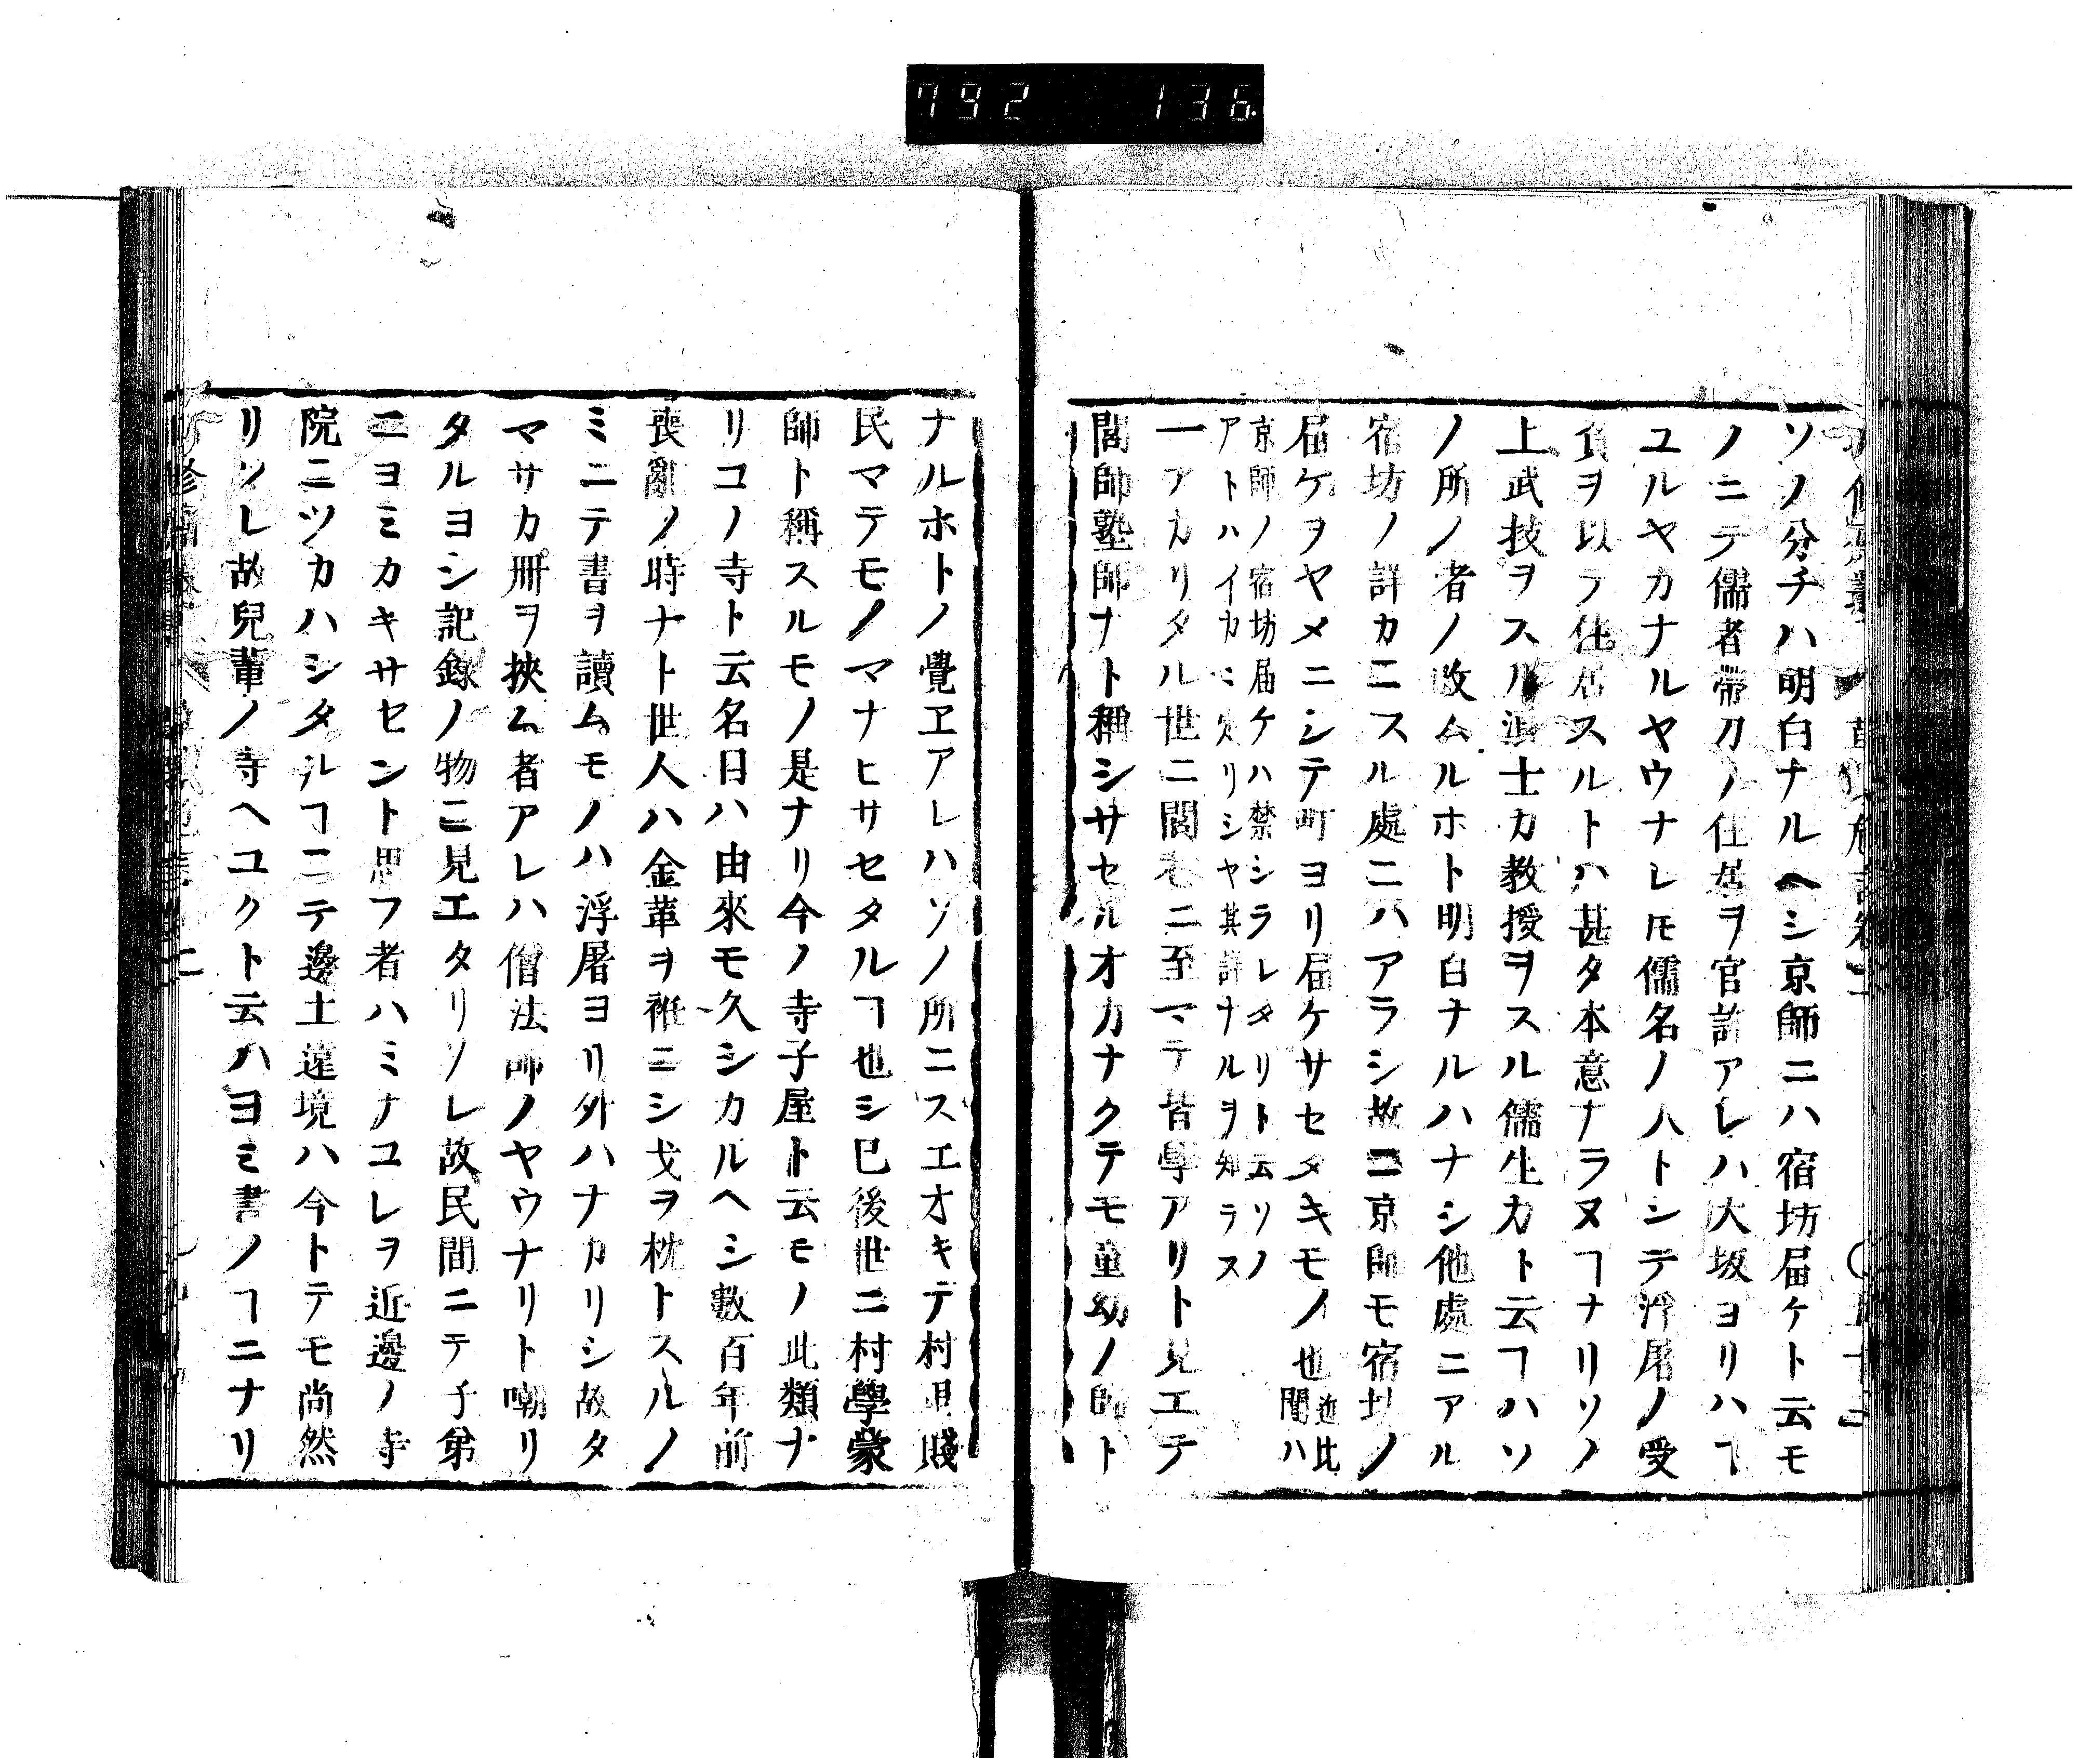 792 136
ソノ分チハ明白ナルヘシ京師ニハ宿坊届ケト云モ
ノニテ儒者帶刀ノ住居ヲ官許アレハ大坂ヨリハヿ
ユルヤカナルヤウナレモ儒名ノ人トシテ浮屠ノ受
負ヲ以ラ住居スルトハ甚タ本意ナラヌヿナリソノ
上武技ヲスル浪士カ教授ヲスル儒生カト云ヿハソ
ノ所ノ者ノ改ムルホト明白ナルハナシ他處ニアル
宿坊ノ詳カニスル處ニハアラシ故ニ京師モ宿坊ノ
届ケヲヤメニシテ町ヨリ届ケサセタキモノ也近比聞ハ
京師ノ宿坊届ケハ禁シラレタリト云ソノ
アトハイカミ定リシヤ其詳ナルヲ知ラス
一アカリタル世ニ閭巷ニ至マテ皆學アリト見エテ
閭師塾師ナト稱シサセルオカナクテモ童幼ノ師ト
ナルホトノ覺ヱアレハソノ所ニスエオキテ村甿賤
民マテモノマナヒサセタルヿ也シ已後世ニ村學蒙
師ト稱スルモノ是ナリ今ノ寺子屋ト云モノ此類ナ
リコノ寺ト云名目ハ由來モ久シカルヘシ數百年前
喪亂ノ時ナト世人ハ金革ヲ袵ニシ戈ヲ枕トスルノ
ミニテ書ヲ讀ムモノハ浮屠ヨリ外ハナカリシ故タ
マサカ冊ヲ挾ム者アレハ僧法師ノヤウナリト嘲リ
タルヨシ記録ノ物ニ見エタリソレ故民間ニテ子弟
ニヨミカキサセント思フ者ハミナコレヲ近邊ノ寺
院ニツカハシタルヿニテ邊土遠境ハ今トテモ尚然
リソレ故兒輩ノ寺ヘユクト云ハヨミ書ノヿニナリ